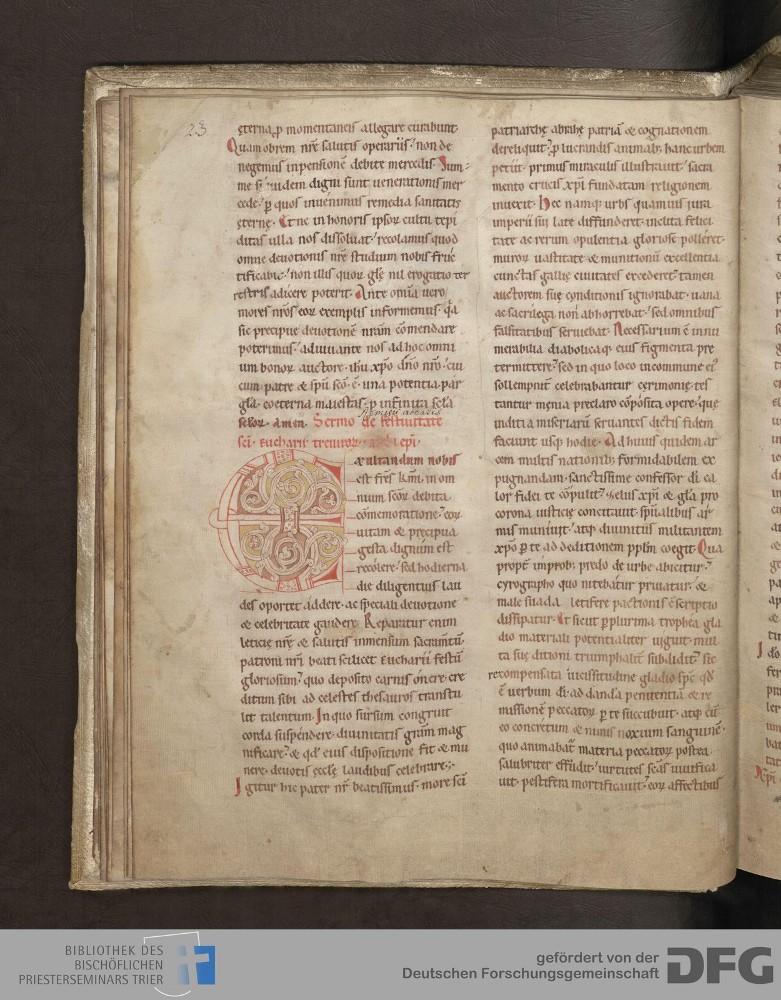 23
ęterna p momentaneis allegare curabunt.
Quam obrem nrę salutis operariis. non de
negemus inpensionē debitę mercedis. Sum-
me si quidem digni sunt uenerationis mer
cede. p quos inuenimus remedia sanitatis
ęternę. Et ne in honoris ipsoꝝ cultu tepi
ditas ulla nos dissoluat. recolamus quod
omne deuotionis nrę studium nobis fruc
tificabit. non illis quoꝝ glę nil erogatio ter
restris adicere poterit. Ante omīa uero
mores nros eoꝝ exemplis informemus. q̄a
sic precipue deuotionē nram cōmendare
poterimus. adiuuante nos ad hoc omni
um bonoꝝ auctore. ihu xpo dño nro. cui
cum patre & spū sco ē una potentia. par
gla. coeterna maiestas. p infinita scla
scloꝝ. Amen. Sermo de festiuitate
sci. Eucharii treuiroꝝ epi.
Exultandum nobis
est frēs kmi. in om
nium scoꝝ debita
cōmemoratione. eoꝝ
uitam & precipua
gesta dignum est
recolere. sed hodierna
die diligentius lau
des oportet addere. ac speciali deuotione
& celebritate gaudere. Reparatur enim
leticię nrę & salutis inmensum sacramtū.
patroni nri beati scilicet Eucharii festū
gloriosum. quo deposito carnis onere. cre
ditum sibi ad celestes thesauros transtu
lit talentum. In quo sursum congruit
corda suspendere. diuinitatis gram mag
nificare. & qd eius dispositione fit & mu
nere. deuotis ecclę laudibus celebrare.
Igitur hic pater nr beatissimus. more sci
patriarchę abrahę patriā & cognationem
dereliquit. p lucrandis animab; hanc urbem
petiit. primus miraculis illustrauit. sacra
mento crucis xpi fundatam religionem
inuexit. Hec namq; urbs quamuis iura
imperii sui late diffunderet. inclita felici
tate ac rerum opulentia gloriose polleret.
muroꝝ uastitate & munitionū excellentia
cunctas gallię ciuitates excederet. tamen
auctorem suę conditionis ignorabat. uana
ac sacrilega non abhorrebat. sed omnibus
falsitatibus seruiebat. Necessarium ē innu
merabilia diabolicaq; eius figmenta pre
termittere. sed in quo loco incommune ei
sollempnit celebrabantur cęrimonię. tes
tantur męnia preclaro cōposita opere. que
inditi a miseriarū seruantes dictis fidem
faciunt usq; hodie. Ad huius quidem ar
cem multis nationib; formidabilem ex
pugnandam. sanctissime confessor di. ca
lor fidei te cōpulit. zelus xpi & gla pro
corona iusticię concitauit. spūalibus ar
mis muniuit. atq; diuinitus militantem
xpo p te ad deditionem pplm coegit. Qua
propt improb; predo de urbe abicitur.
cyrographo quo nitebatur priuatur. &
male suada letifere pactionis cscriptio
dissipatur. Et sicut p plurima trophea gla
dio materiali potentialiter uiguit. mul
ta suę dicioni triumphalit subdidit. sic
recompensata uicissitudine gladio spc qd
ē uerbum di. ad danda penitentiā & re
missionē peccatoꝝ p te succubuit. atq; cū
eo concretum & nimis noxium sanguinē.
quo animabat materia peccatoꝝ postea
salubriter effudit. uirtutes scas uiuifica
uit. pestifera mortificauit. eoꝝ affectibus
BIBLIOTHEK DES
BISCHÖFLICHEN
PRIESTERSEMINARS TRIER
gefördert von der
Deutschen Forschungsgemeinschaft
DFG